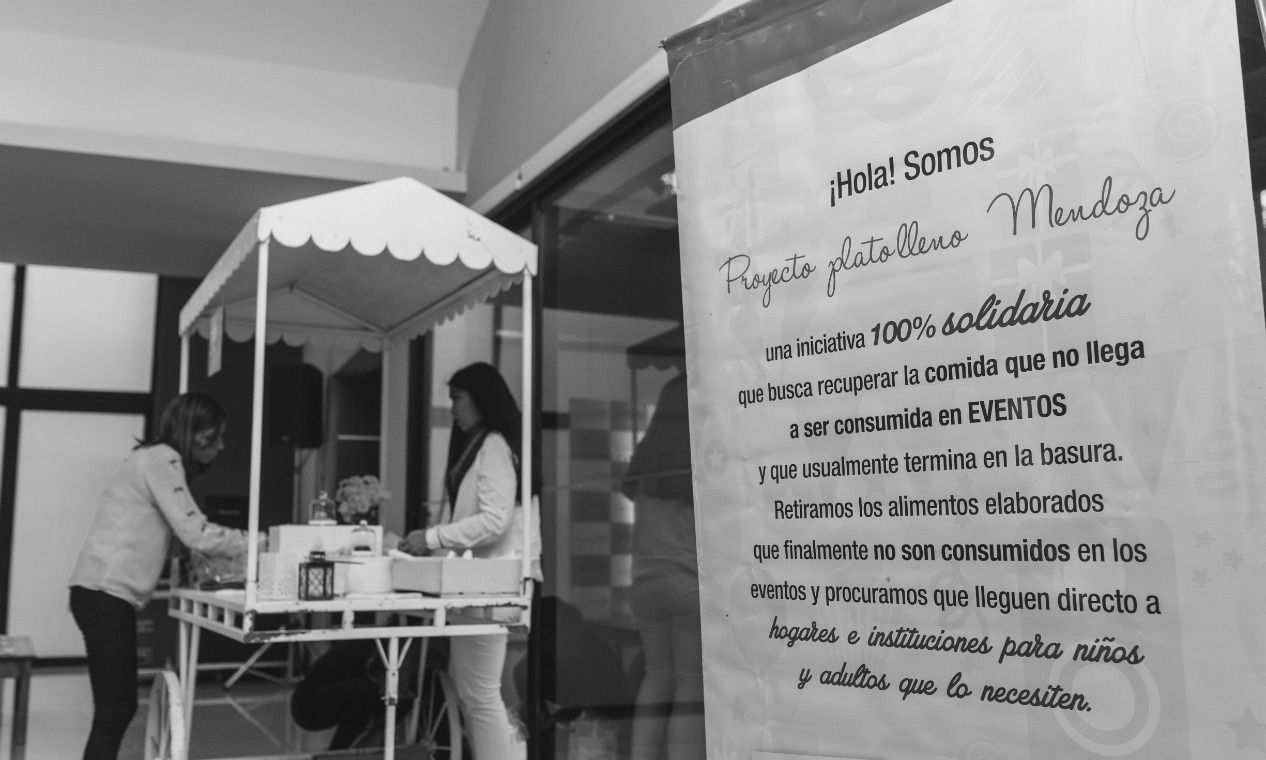 ¡Hola! Somos
Proyecto platolleno Mendoza
una iniciativa 100% solidaria
que busca recuperar la comida que no llega
a ser consumida en EVENTOS
y que usualmente termina en la basura.
Retiramos los alimentos elaborados
que finalmente no son consumidos en los
eventos y procuramos que lleguen directo a
hogares e instituciones para niños
y adultos que lo necesiten.